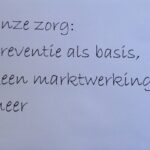 nze zorg:
reventie als basis,
een marktwerking
eer